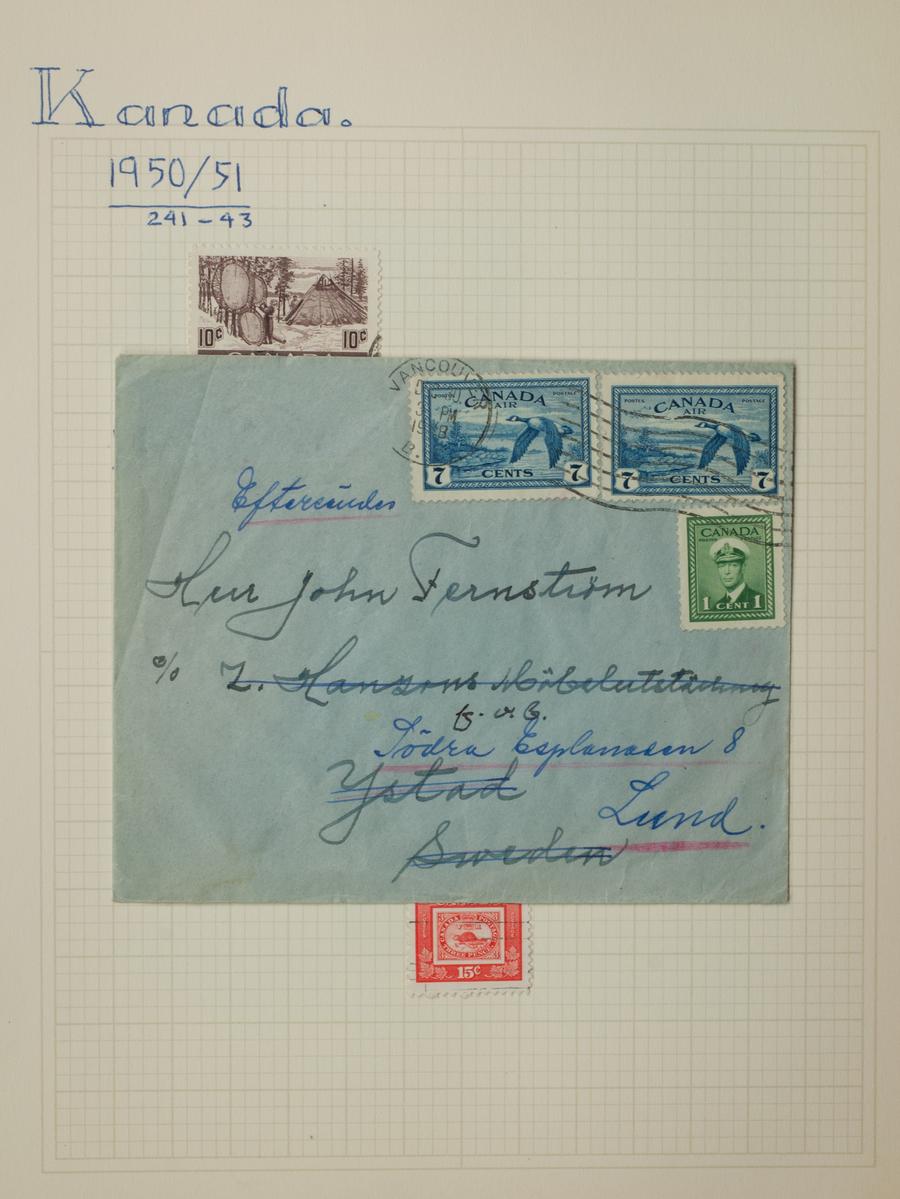 Kanada.
1950/51
241-43
10¢ 10¢
CANADA
VANCOUV
PM
19
B.
POSTES POSTAGE
CANADA
AIR
7 CENTS 7
POSTES POSTAGE
CANADA
AIR
7 CENTS 7
Eftersändes
CANADA
POSTES POSTAGE
1 CENT 1
Herr John Fernström
c/o L. Hanzons Möbelutställning
Södra Esplanaden 8
Ystad
Lund.
Sweden
CANADA POSTAGE
THREE PENCE
15¢